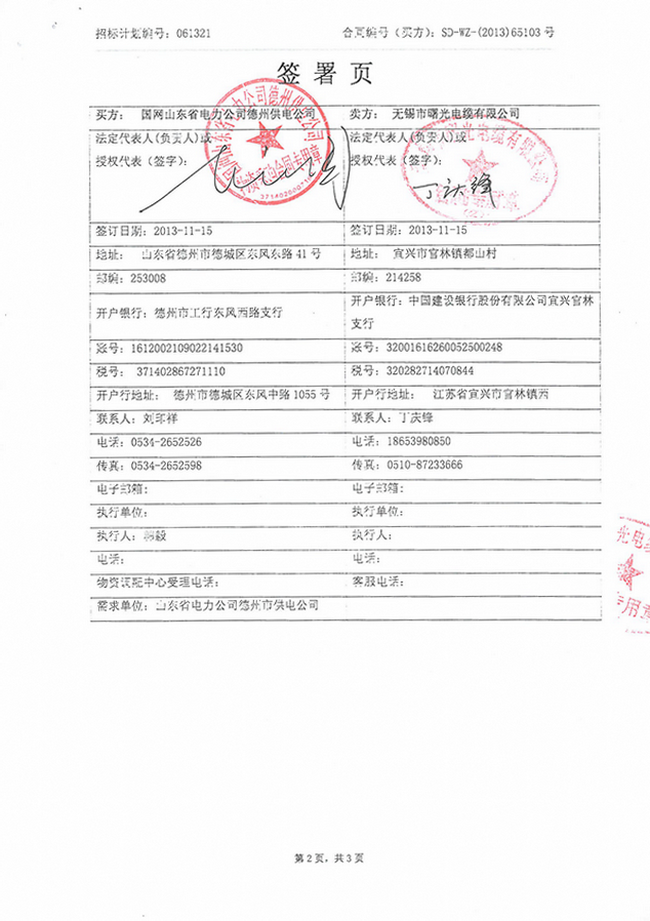 招标计划编号：061321 合同编号（买方）：SD-WZ-(2013)65103 号
签 署 页
买方： 国网山东省电力公司德州供电公司 卖方： 无锡市曙光电缆有限公司
法定代表人(负责人)或 法定代表人(负责人)或
授权代表（签字）： 授权代表（签字）：
丁庆锋
签订日期：2013-11-15 签订日期：2013-11-15
地址： 山东省德州市德城区东风东路 41 号 地址： 宜兴市官林镇都山村
邮编：253008 邮编：214258
开户银行：德州市工行东风西路支行 开户银行：中国建设银行股份有限公司宜兴官林
支行
账号：1612002109022141530 账号：32001616260052500248
税号： 371402867271110 税号：320282714070844
开户行地址： 德州市德城区东风中路 1055 号 开户行地址： 江苏省宜兴市官林镇西
联系人：刘印祥 联系人：丁庆锋
电话：0534-2652526 电话：18653980850
传真：0534-2652598 传真：0510-87233666
电子邮箱： 电子邮箱：
执行单位： 执行单位：
执行人： 毅 执行人：
电话： 电话：
物资调配中心受理电话： 客服电话：
需求单位：山东省电力公司德州市供电公司
光电缆
专用章
第 2 页，共 3 页